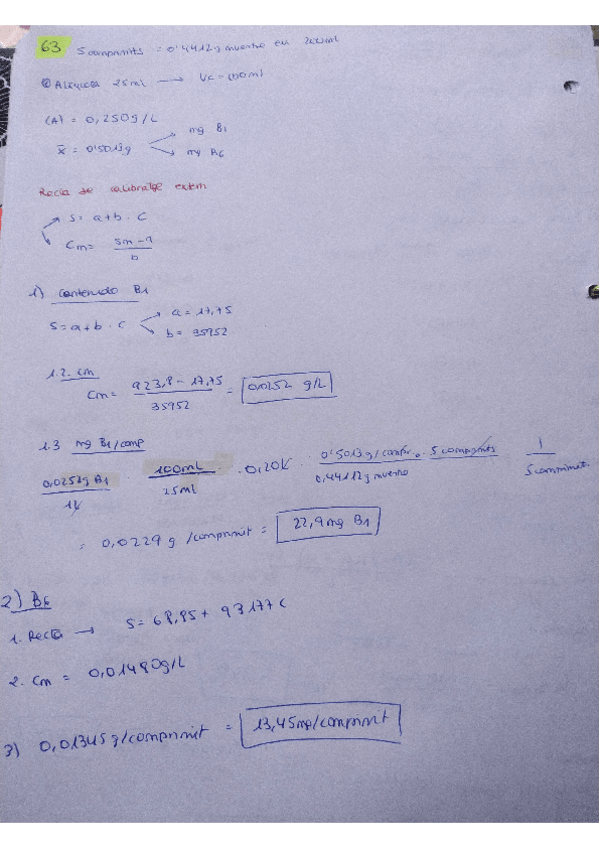 63 5 compinmits = 0'4412g muestra en 200ml
② Alíquota 25ml → Vf = 100ml
(A) = 0,250g/L
x̄ = 0'5013g mg B1
mg B6
Recta de calibratge extern
S = a+b·c
Cm = Sm-a / b
1) Contenido B1
S = a+b·c a = 17,75
b = 35952
1.2. Cm
Cm = 923,8 - 17,75 / 35952 = 0,0252 g/L
1.3 mg B1/comp
0,0252g B1 / 1L · 100mL / 25ml · 0,20L · 0'5013g/compr · 5 compinmits / 0,44112g muestra 1 / 5 comprimit.
= 0,0229 g/compinmit = 22,9mg B1
2) B6
1. Recta → S = 68,85 + 93177 C
2. Cm = 0,01480g/L
3) 0,01345g/compinmit = 13,45mg/compinmit